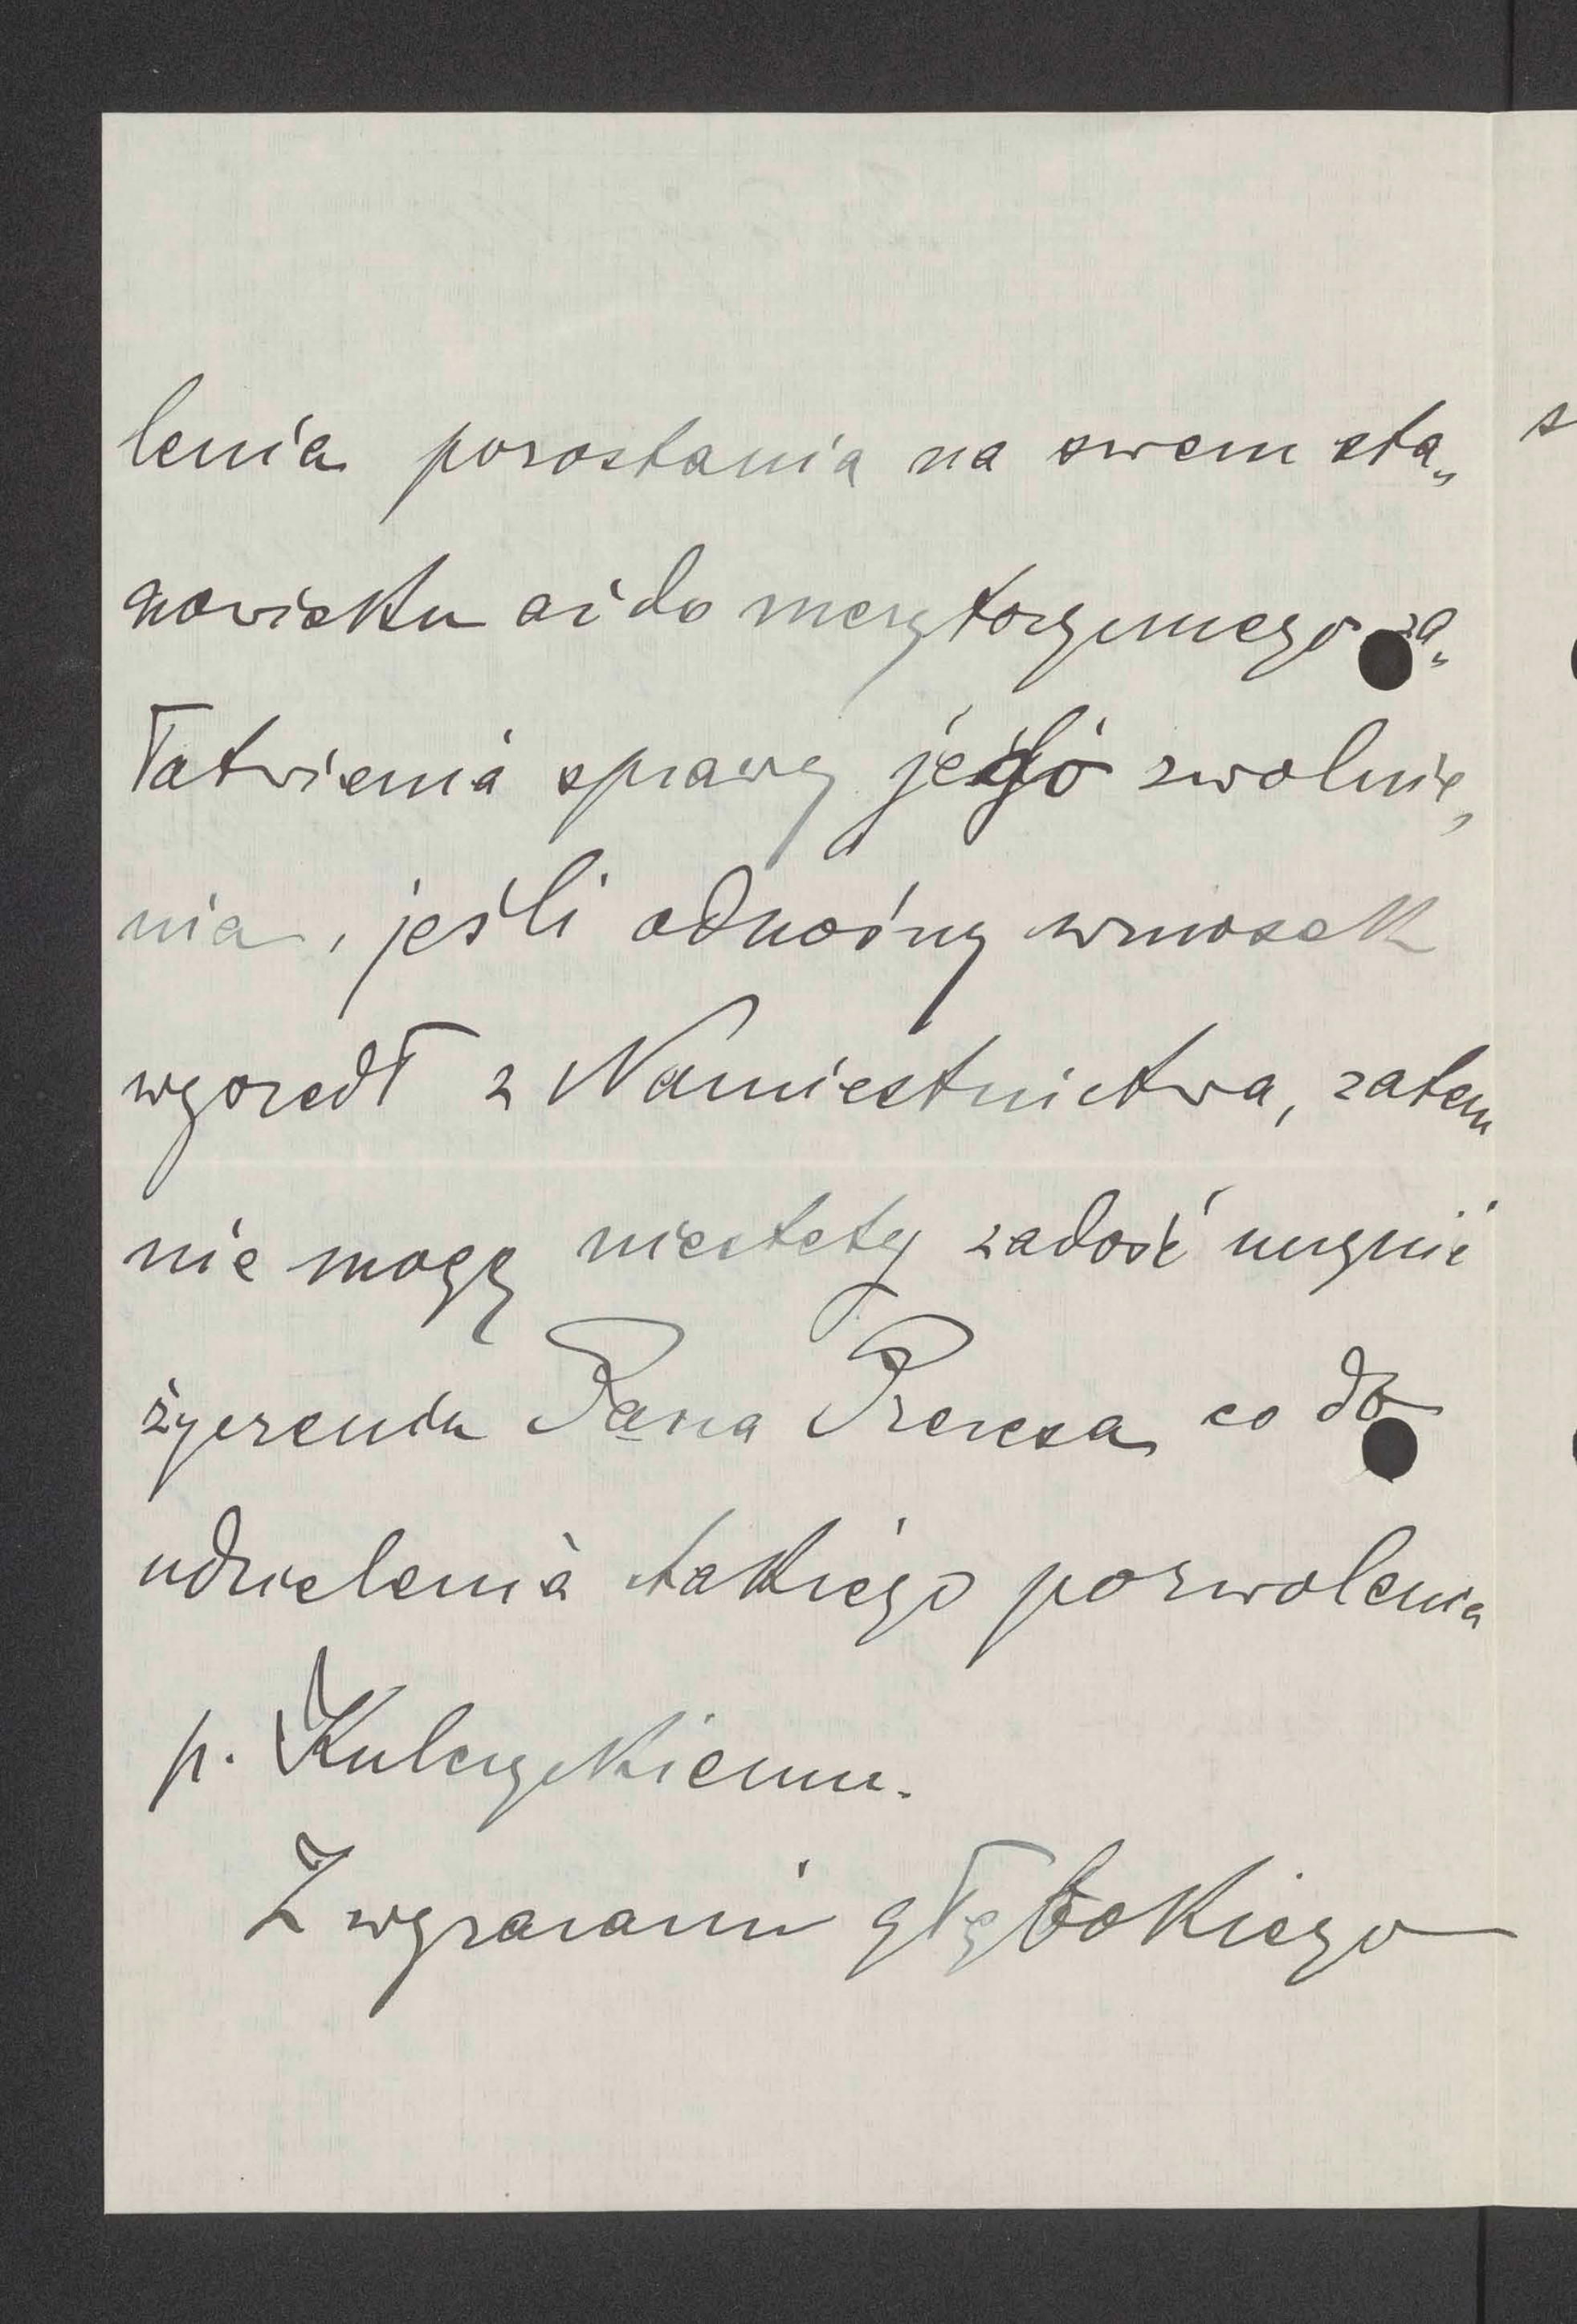 lenia pozostania na swem sta„
nowisku aż do merytorycznego za„
łatwienia sprawy jego zwolnie„
nia, jeśli odnośny wniosek
wyszedł z Namiestnictwa, zatem
nie mogę niestety zadość uczynić
życzeniu Pana Prezesa co do
udzielenia takiego pozwolenia
p. Kulczyckiemu.
Z wyrazami głębokiego